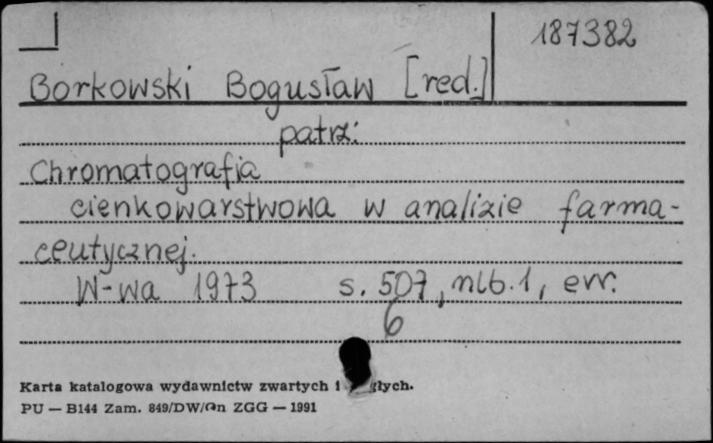 187382
Borkowski Bogusław [red.]
patrz:
Chromatografia
cienkowarstwowa w analizie farma-
ceutycznej.
W-wa 1973 s. 507, nlb. 1, err.
6
Karta katalogowa wydawnictw zwartych i
PU — B144 Zam. 849/DW/ ZGG — 1991